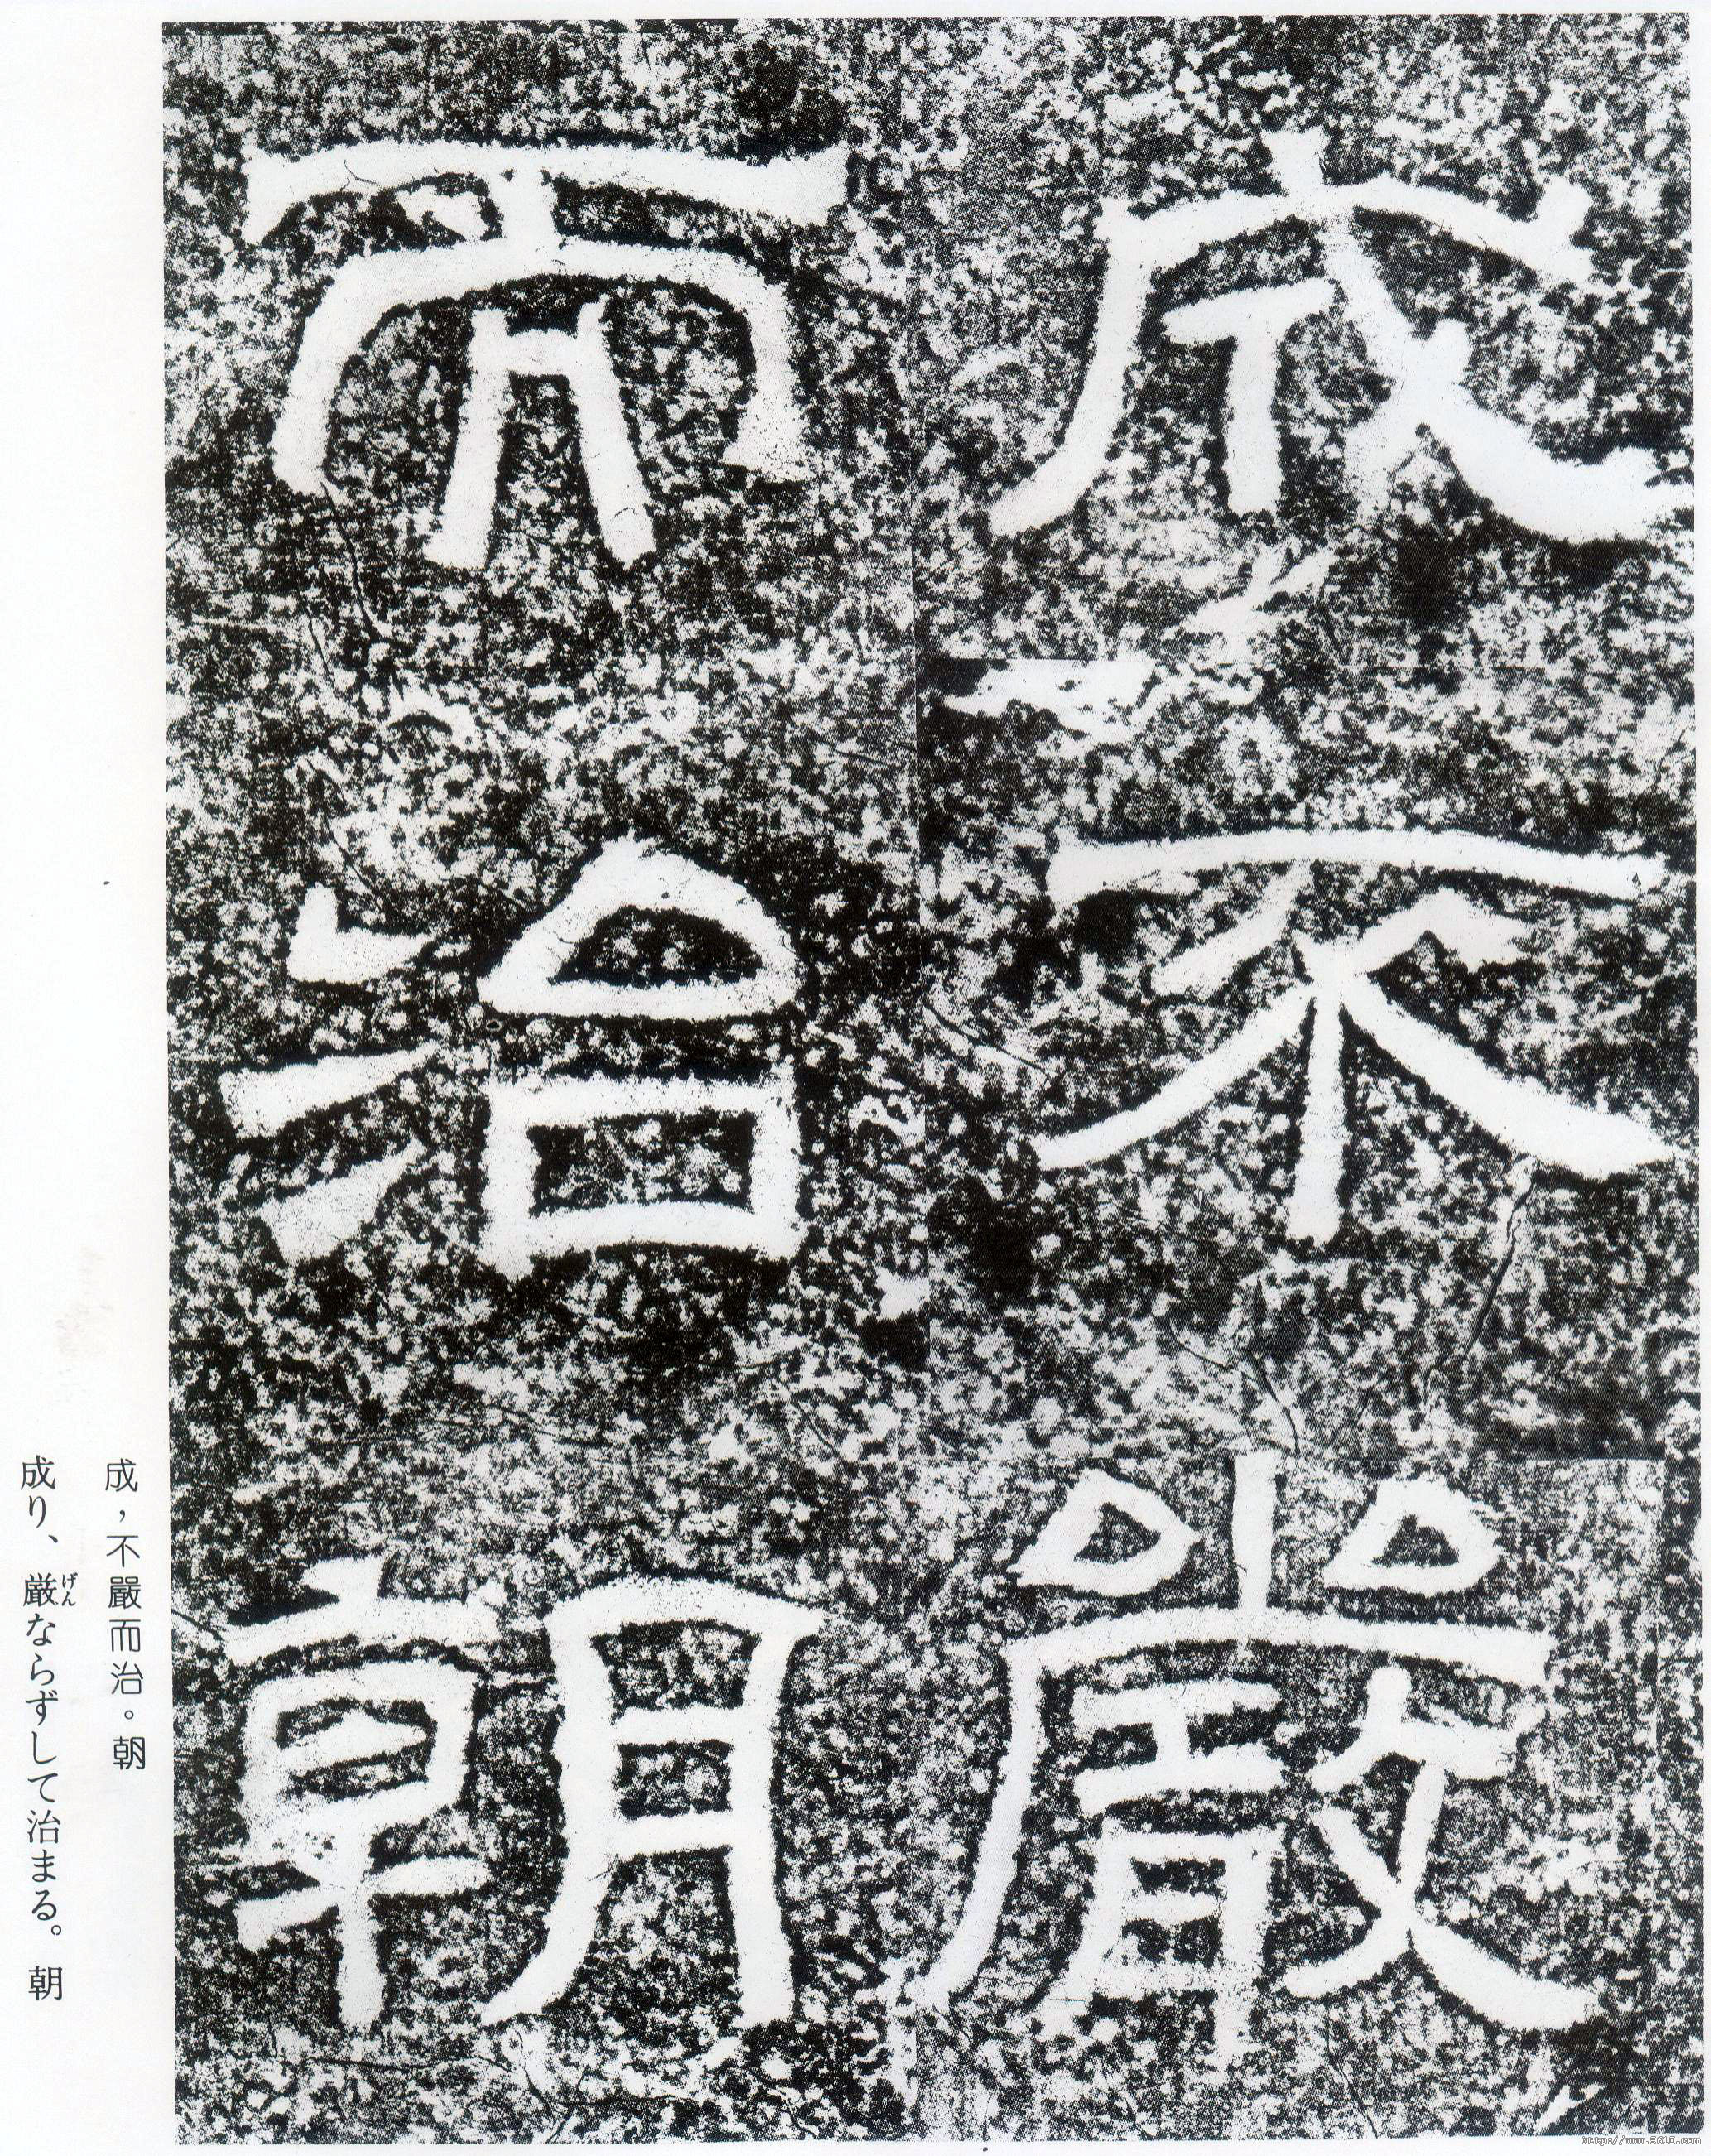 成不嚴
而治朝
成，不嚴而治。朝
成り、厳ならずして治まる。朝
げん
http://www.9610.com